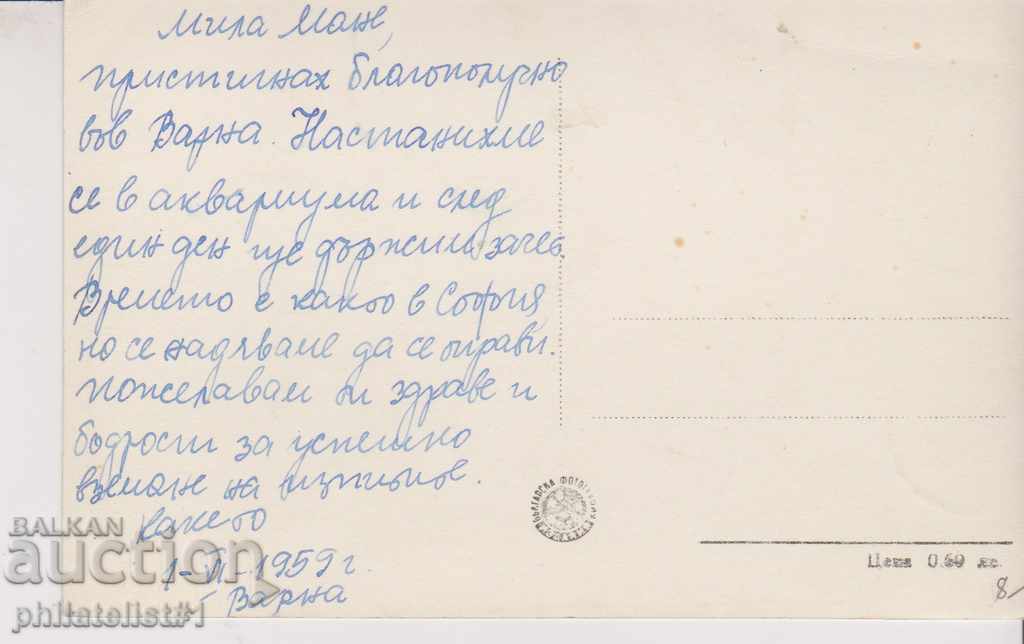 Мила Мане,
пристигнах благополучно
във Варна. Настанихме
се в аквариума и след
един ден ще държим зачет.
Времето е както в София,
но се надяваме да се оправи.
Пожелавам ти здраве и
бодрост за успешно
вземане на изпитите.
Какето
1-VI-1959 г.
Варна
БЪЛГАРСКА ФОТОГРАФИЯ
Цена 0.60 лв.
8
BALKAN
auction
philatelist#1